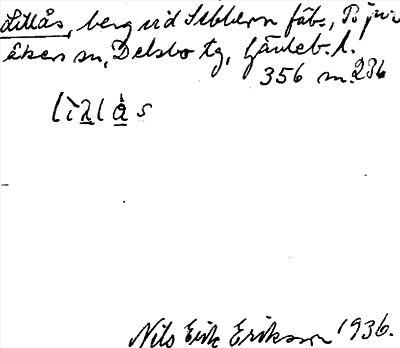 Lillås, berg vid Sibbern fäb., Bjur-
åkers sn, Delsbo tg, Gävleb. l.
356 m. 286
lìλlås
Nils Erik Eriksson 1936.